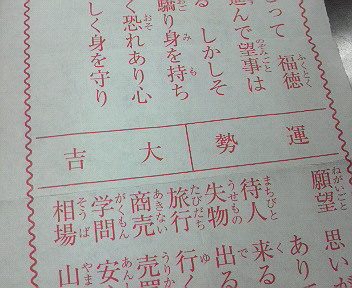 とって 福徳
進んで望事は
る しかしそ
驕り身を持ち
く恐れあり心
しく身を守り
運勢
大吉
願望 思いが
あり
待人 来る
失物 出る
旅行 行く
商売 売買
学問 安
相場 山